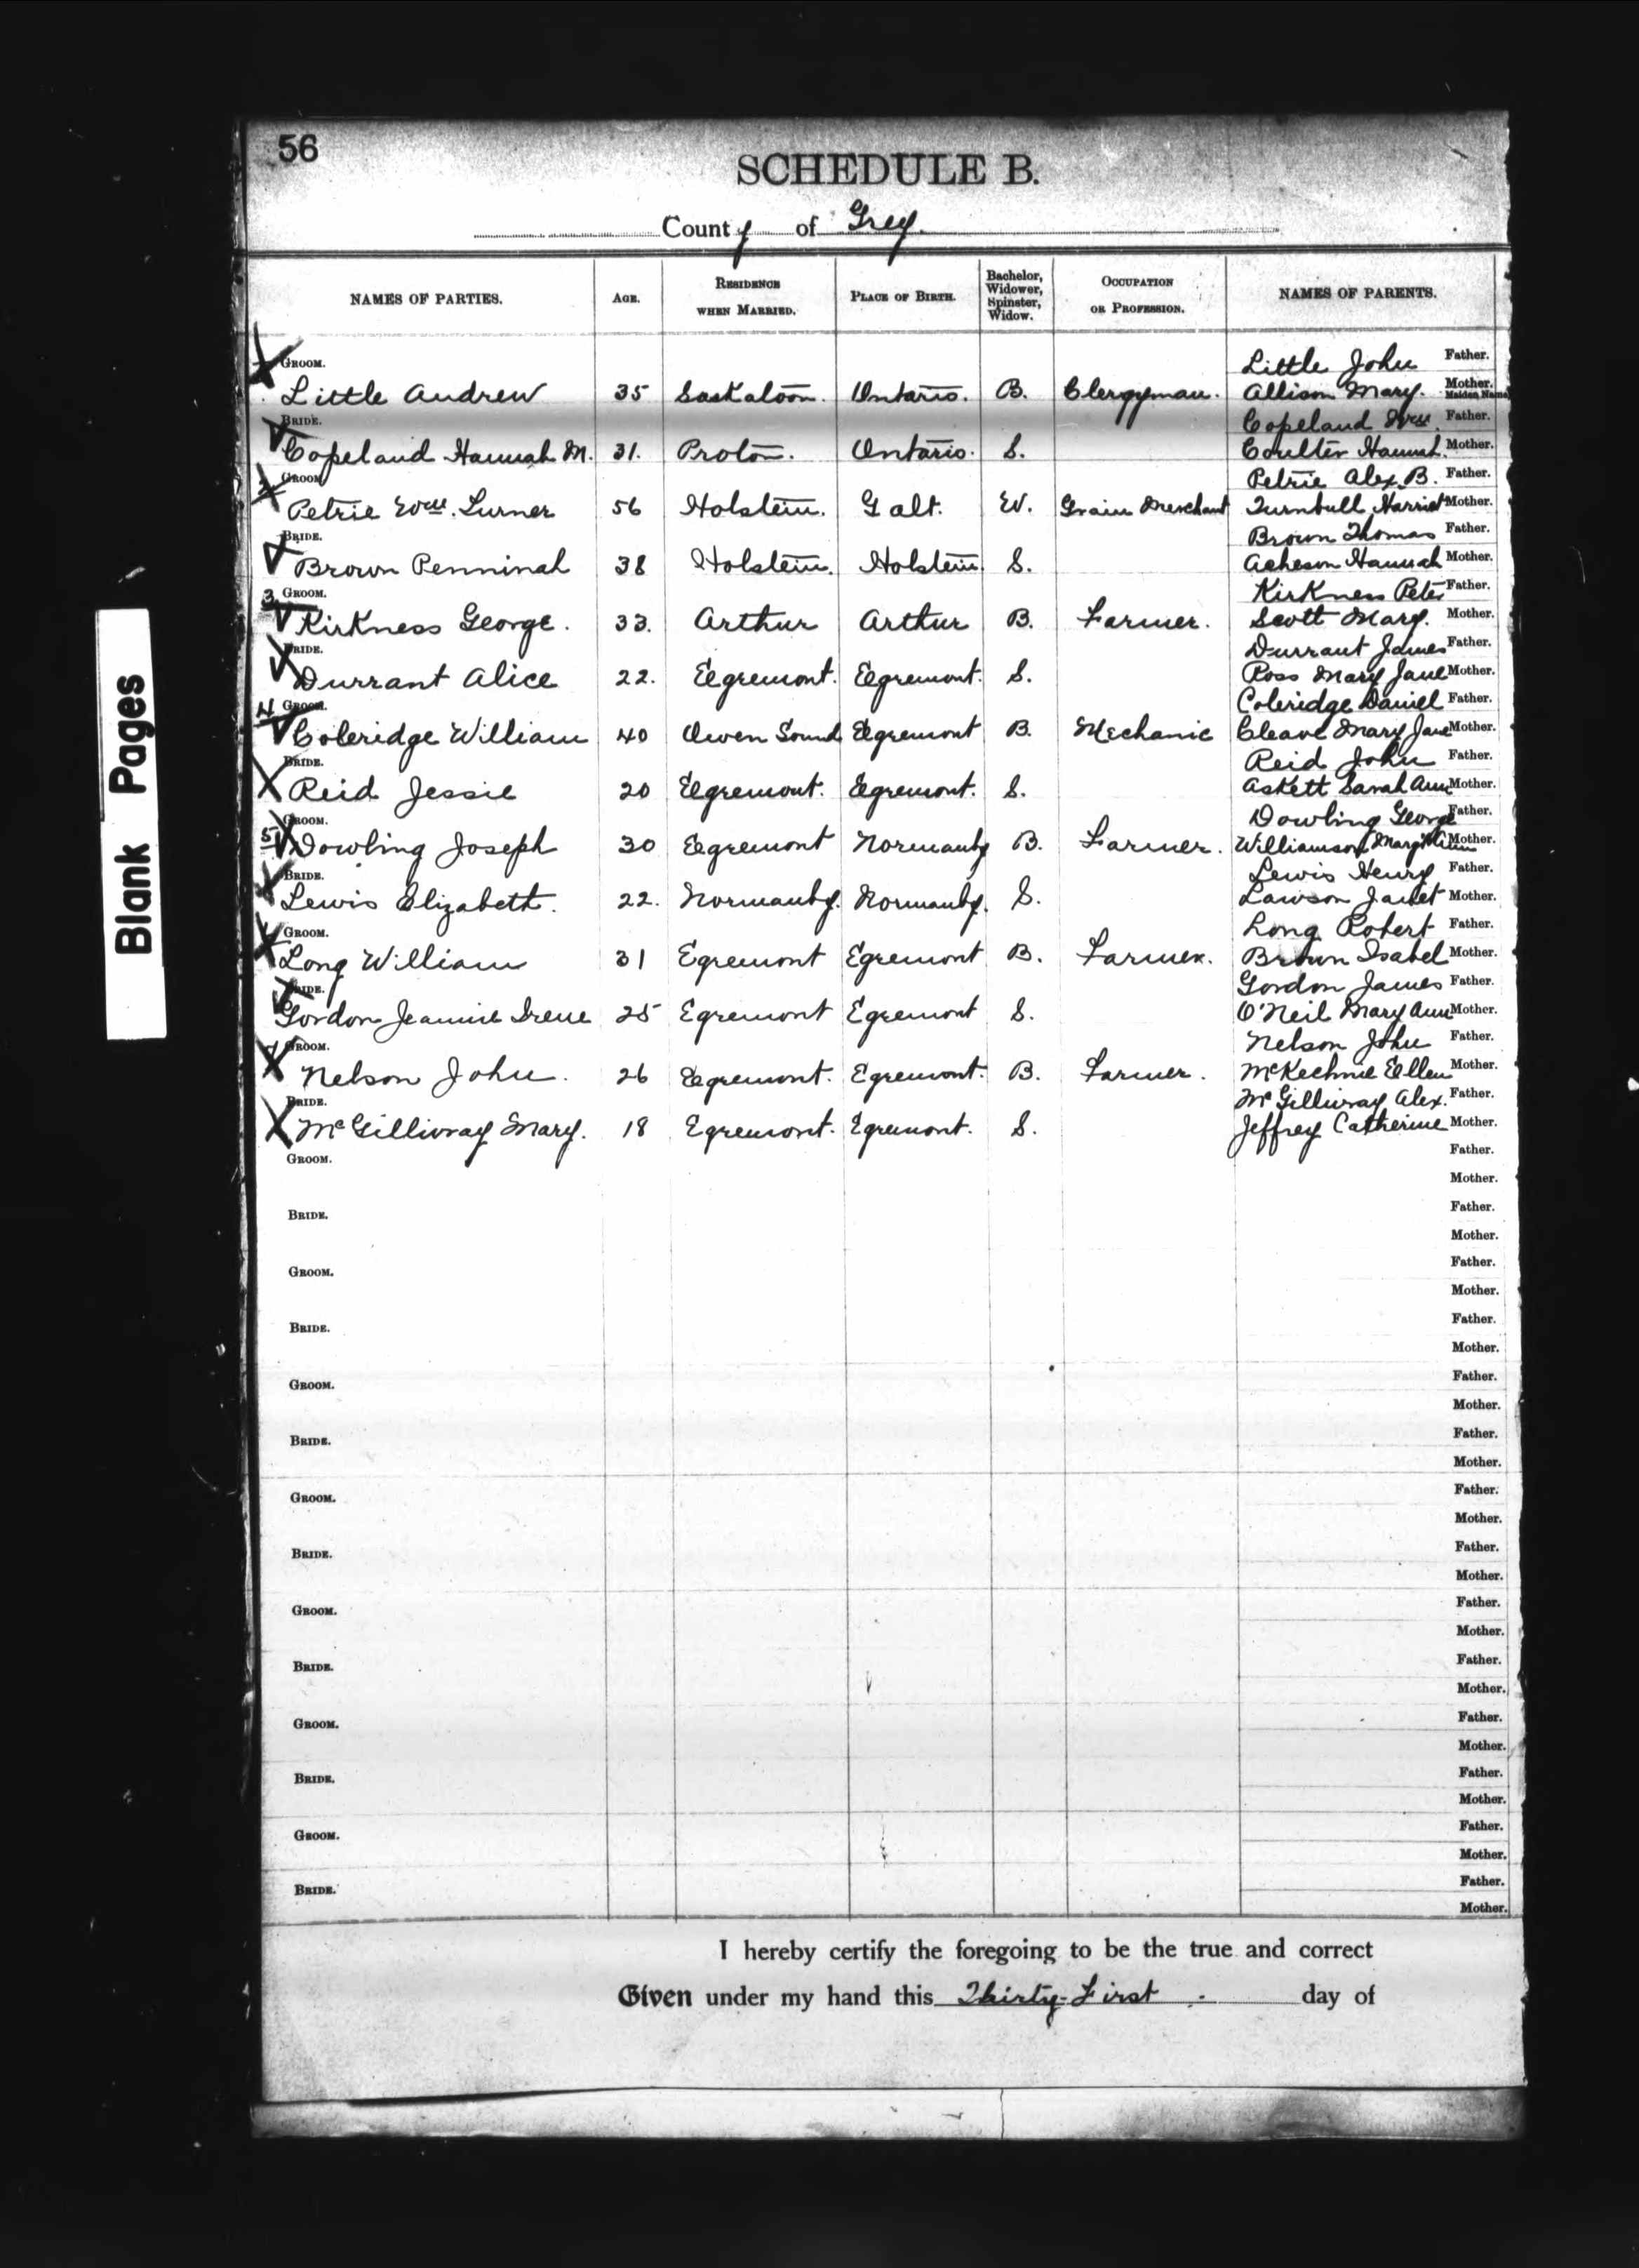 56
SCHEDULE B.
County of Grey.
NAMES OF PARTIES. AGE. RESIDENCE WHEN MARRIED. PLACE OF BIRTH. Bachelor, Widower, Spinster, Widow. OCCUPATION OR PROFESSION. NAMES OF PARENTS.
GROOM. Little John Father.
Little Andrew 35 Saskatoon. Ontario. B. Clergyman. Allison Mary. Mother. Maiden Name
BRIDE. Copeland Wm. Father.
Copeland Hannah M. 31. Proton. Ontario. S. Coulter Hannah. Mother.
2 GROOM Petrie Alex. B. Father.
Petrie Wm. Turner 56 Holstein. Galt. W. Grain Merchant Turnbull Harriet Mother.
BRIDE. Brown Thomas Father.
Brown Penninah 38 Holstein. Holstein S. Acheson Hannah Mother.
3 GROOM. Kirkness Peter Father.
Kirkness George. 33. Arthur Arthur B. Farmer. Scott Mary. Mother.
BRIDE. Durrant James Father.
Durrant Alice 22. Egremont. Egremont. S. Ross Mary Jane Mother.
4 GROOM. Coleridge Daniel Father.
Coleridge William 40 Owen Sound Egremont B. Mechanic Cleave Mary Jane Mother.
BRIDE. Reid John Father.
Reid Jessie 20 Egremont. Egremont. S. Askett Sarah Ann Mother.
GROOM. Dowling George Father.
5 Dowling Joseph 30 Egremont Normanby B. Farmer. Williamson Mother.
BRIDE. Lewis Henry Father.
Lewis Elizabeth. 22. Normanby. Normanby. S. Lawson Janet Mother.
GROOM. Long Robert Father.
Long William 31 Egremont Egremont B. Farmer. Brown Isabel Mother.
BRIDE. Gordon James Father.
Gordon Jeannie Irene 25 Egremont Egremont S. O'Neil Mary Ann Mother.
7 GROOM. Nelson John Father.
Nelson John. 26 Egremont. Egremont. B. Farmer. McKechnie Ellen Mother.
BRIDE. McGillivray Alex. Father.
McGillivray Mary. 18 Egremont. Egremont. S. Jeffrey Catherine Mother.
GROOM. Father.
Mother.
BRIDE. Father.
Mother.
GROOM. Father.
Mother.
BRIDE. Father.
Mother.
GROOM. Father.
Mother.
BRIDE. Father.
Mother.
GROOM. Father.
Mother.
BRIDE. Father.
Mother.
GROOM. Father.
Mother.
BRIDE. Father.
Mother.
GROOM. Father.
Mother.
BRIDE. Father.
Mother.
GROOM. Father.
Mother.
BRIDE. Father.
Mother.
I hereby certify the foregoing to be the true and correct
Given under my hand this Thirty-First day of
Blank Pages